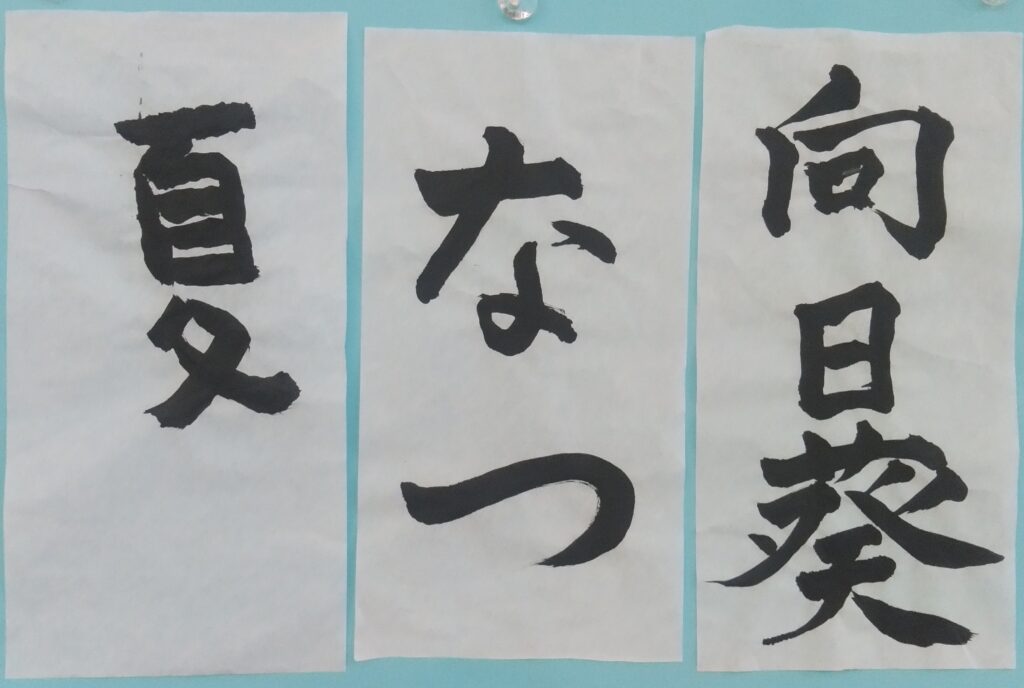 向日葵
なつ
夏